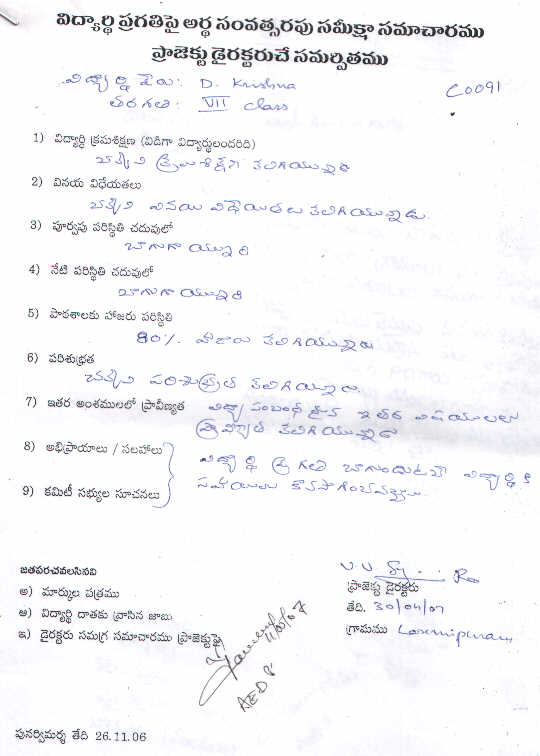 విద్యార్థి ప్రగతిపై అర్థ సంవత్సరపు సమీక్షా సమాచారము
ప్రాజెక్టు డైరక్టరుచే సమర్పితము
విద్యార్థి పేరు: D. Krishna
C0091
తరగతి: VII class
1) విద్యార్థి క్రమశిక్షణ (విడిగా విద్యార్థులందరిది)
చక్కని క్రమశిక్షణ కలిగియున్నాడు
2) వినయ విధేయతలు
చక్కని వినయ విధేయతలు కలిగియున్నాడు.
3) పూర్వపు పరిస్థితి చదువులో
బాగుగా యున్నది
4) నేటి పరిస్థితి చదువులో
బాగుగా యున్నది
5) పాఠశాలకు హాజరు పరిస్థితి
80% హాజరు కలిగియున్నాడు
6) పరిశుభ్రత
చక్కని పరిశుభ్రత కలిగియున్నాడు.
7) ఇతర అంశములలో ప్రావీణ్యత విద్యా సంబంధమైన ఇతర విషయాలలో
ప్రావీణ్యత కలిగియున్నాడు
8) అభిప్రాయాలు / సలహాలు
విద్యార్థి ప్రగతి బాగుందుటచే విద్యార్థికి
సహాయము కొనసాగించవచ్చును.
9) కమిటీ సభ్యుల సూచనలు
జతపరచవలసినవి
ప్రాజెక్టు డైరక్టరు
అ) మార్కుల పత్రము
తేది. 30/04/07
ఆ) విద్యార్థి దాతకు వ్రాసిన జాబు
గ్రామము
ఇ) డైరక్టరు సమగ్ర సమాచారము ప్రాజెక్టుపై
11/05/07
పునర్విమర్శ తేది 26.11.06